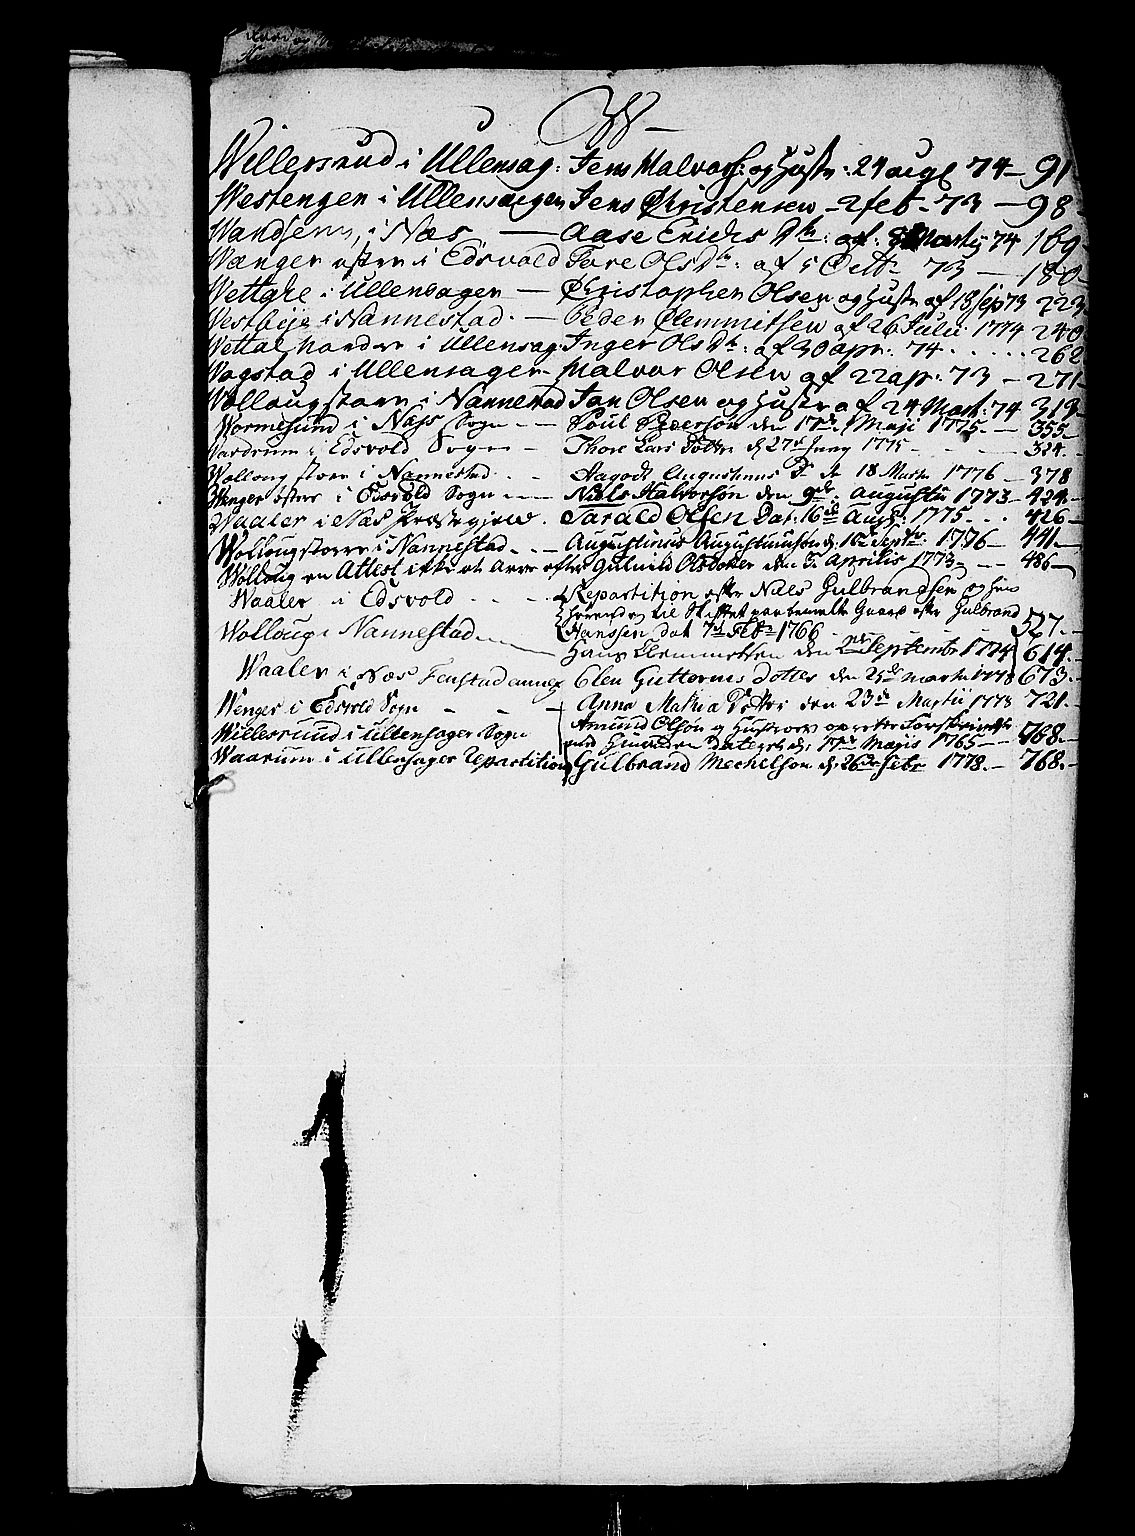 W
Willersrud i Ullensag: Jens Halvors: og Hustr: 24 augt 74 — 91
Westengen i Ullensagen Jens Christensen — 2 feb — 73 — 98
Wandsem, i Næs — Aase Erichs Dtr: af: 8 Martij 74 169
Wænger østre i Edsvold Tore Ols Dtr: af 5 Octbr 73 — 180
Wettahe i Ullensagen — Christopher Olsen og Hustr af 18 sep 73 223
Westbye i Nannestad. — Peder Clemmitsen af 26 Julii 1774 240
Wettal nordre i Ullensag: Inger Ols Dtr: af 30 apr: 74 . . . . 262
Wogstad i Ullensagen — Halvor Olsen af 22 ap: 73 — 271
Wolloug store i Nannestad Jan Olsen og Hustr af 24 Mart: 74 319
Wormesund i Næss Sogn — — Poul Pederson den 17de Maji 1775. — 355
Wardrum i Edsvold Sogn — Thore Lars Dotter d 27de Juny 1775 — — 324.
Wolloug store i Nannestad. . — Aagodt Augustinus D. de 18 Marti 1776 — 378
Wenger østre i Edsvold Sogn — — Niels Halvorson den 9de Augustii 1773 — 424.
Waaler i Næs Præstegjeld. Tarald Olsen Dat: 16de Aug: 1775. . . 426
Wolloug store i Nannestad. . — Augustinus Augustinuson d: 16de Septbr: 1776 — 441
Wolloug en Attest ikke at Arve efter Gulnild Olsdotter den 5. Aprilis 1773 — — 486
Waaler i Edsvold . . — Repartition efter Niels Gulbrandsen og
til Skiftet paa bemelte Gaard efter Gulbrand
Hanssen dat 7de Febr 1766 527. —
Wolloug i Nannestad — Hans Clemmetsen den Septembr 1774 614.
Waaler i Næs Fenstad annex Elen Guttormes Dotter den 25de Martii 1778 673.
Wenger i Edsvold Sogn — — — Anna Mathia Dotter den 23de Martii 1778 721.
Willersrud i Ullensager Sogn Amund Olsøn og Hustroes
med dateret d: 17de Majis 1765 — 768.
Waarum i Ullensager Repartition Gulbrand Mechelson d: 26de Febr 1778. — 768.